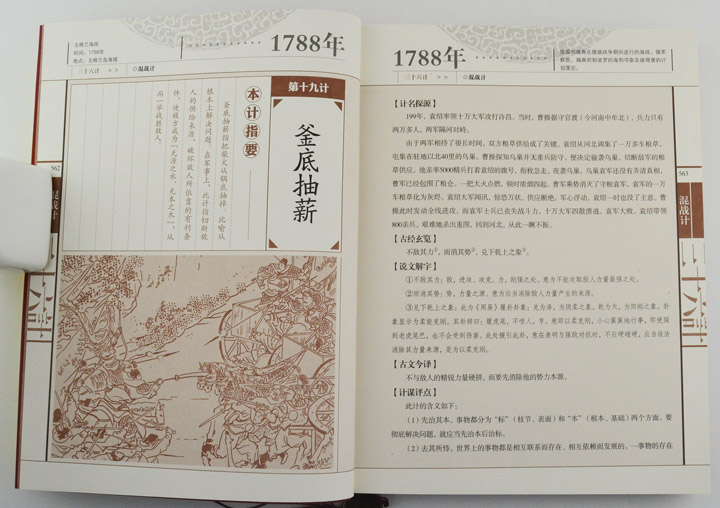 戈格兰海战
时间：1788年
地点：戈格兰岛海域
1788年
三十六计 >> ◎混战计
第十九计
釜底抽薪
本计指要
釜底抽薪指把柴火从锅底抽掉，比喻从
根本上解决问题。在军事上，此计指切断敌
人的供给来源，破坏敌人所依靠的有利条
件，使敌方成为“无源之水，无本之木”，从
而一举战胜敌人。
562
混战计
1788年
三十六计 >> ◎混战计
【计名探源】
199年，袁绍率领十万大军攻打许昌。当时，曹操据守官渡（今河南中牟北），兵力只有
两万多人。两军隔河对峙。
由于两军相持了很长时间，双方粮草供给成了关键。袁绍从河北调集了一万多车粮草，
屯集在驻地以北40里的乌巢。曹操探知乌巢并无重兵防守，便决定偷袭乌巢，切断敌军的粮
草供应。他亲率5000精兵打着袁绍的旗号，衔枚急走，夜袭乌巢。乌巢袁军还没有弄清真相，
曹军已经包围了粮仓。一把大火点燃，顿时浓烟四起。曹军乘势消灭了守粮袁军，袁军的一万
车粮草化为灰烬。袁绍大军闻讯，惊恐万状，供应断绝，军心浮动，袁绍一时也没了主意。曹
操此时发动全线进攻，而袁军士兵已丧失战斗力，十万大军四散溃逃。袁军大败，袁绍带领
800亲兵，艰难地杀出重围，回到河北，从此一蹶不振。
【古经玄览】
不敌其力①，而消其势②，兑下乾上之象③。
【说文解字】
①不敌其力：敌，进攻、攻克。力，刚强之处。意为不能攻取敌人力量最强之处。
②而消其势：势，力量之源。意为应当消除敌人力量产生的来源。
③兑下乾上之象：此为《周易》履卦卦象：兑为泽，为阴柔之象，乾为天，为阳刚之象。卦
象显示为柔能克刚。其卦辞曰：履虎尾，不咥人，亨。意即以柔克刚，小心翼翼地行事，即使踩
到老虎尾巴，也不会受到伤害。此处援引此卦，意在表明与强敌对抗时，不应硬碰硬，应当设法
消除其力量来源，是为以柔克刚。
【古文今译】
不与敌人的精锐力量硬拼，而要先消除他的势力本源。
【计谋评点】
此计的含义如下：
（1）先治其本。事物都分为“标”（枝节、表面）和“本”（根本、基础）两个方面。要
彻底解决问题，就应当先治本后治标。
（2）去其所恃。世界上的事物都是相互联系而存在、相互依赖而发展的。一事物的存在
563
混战计